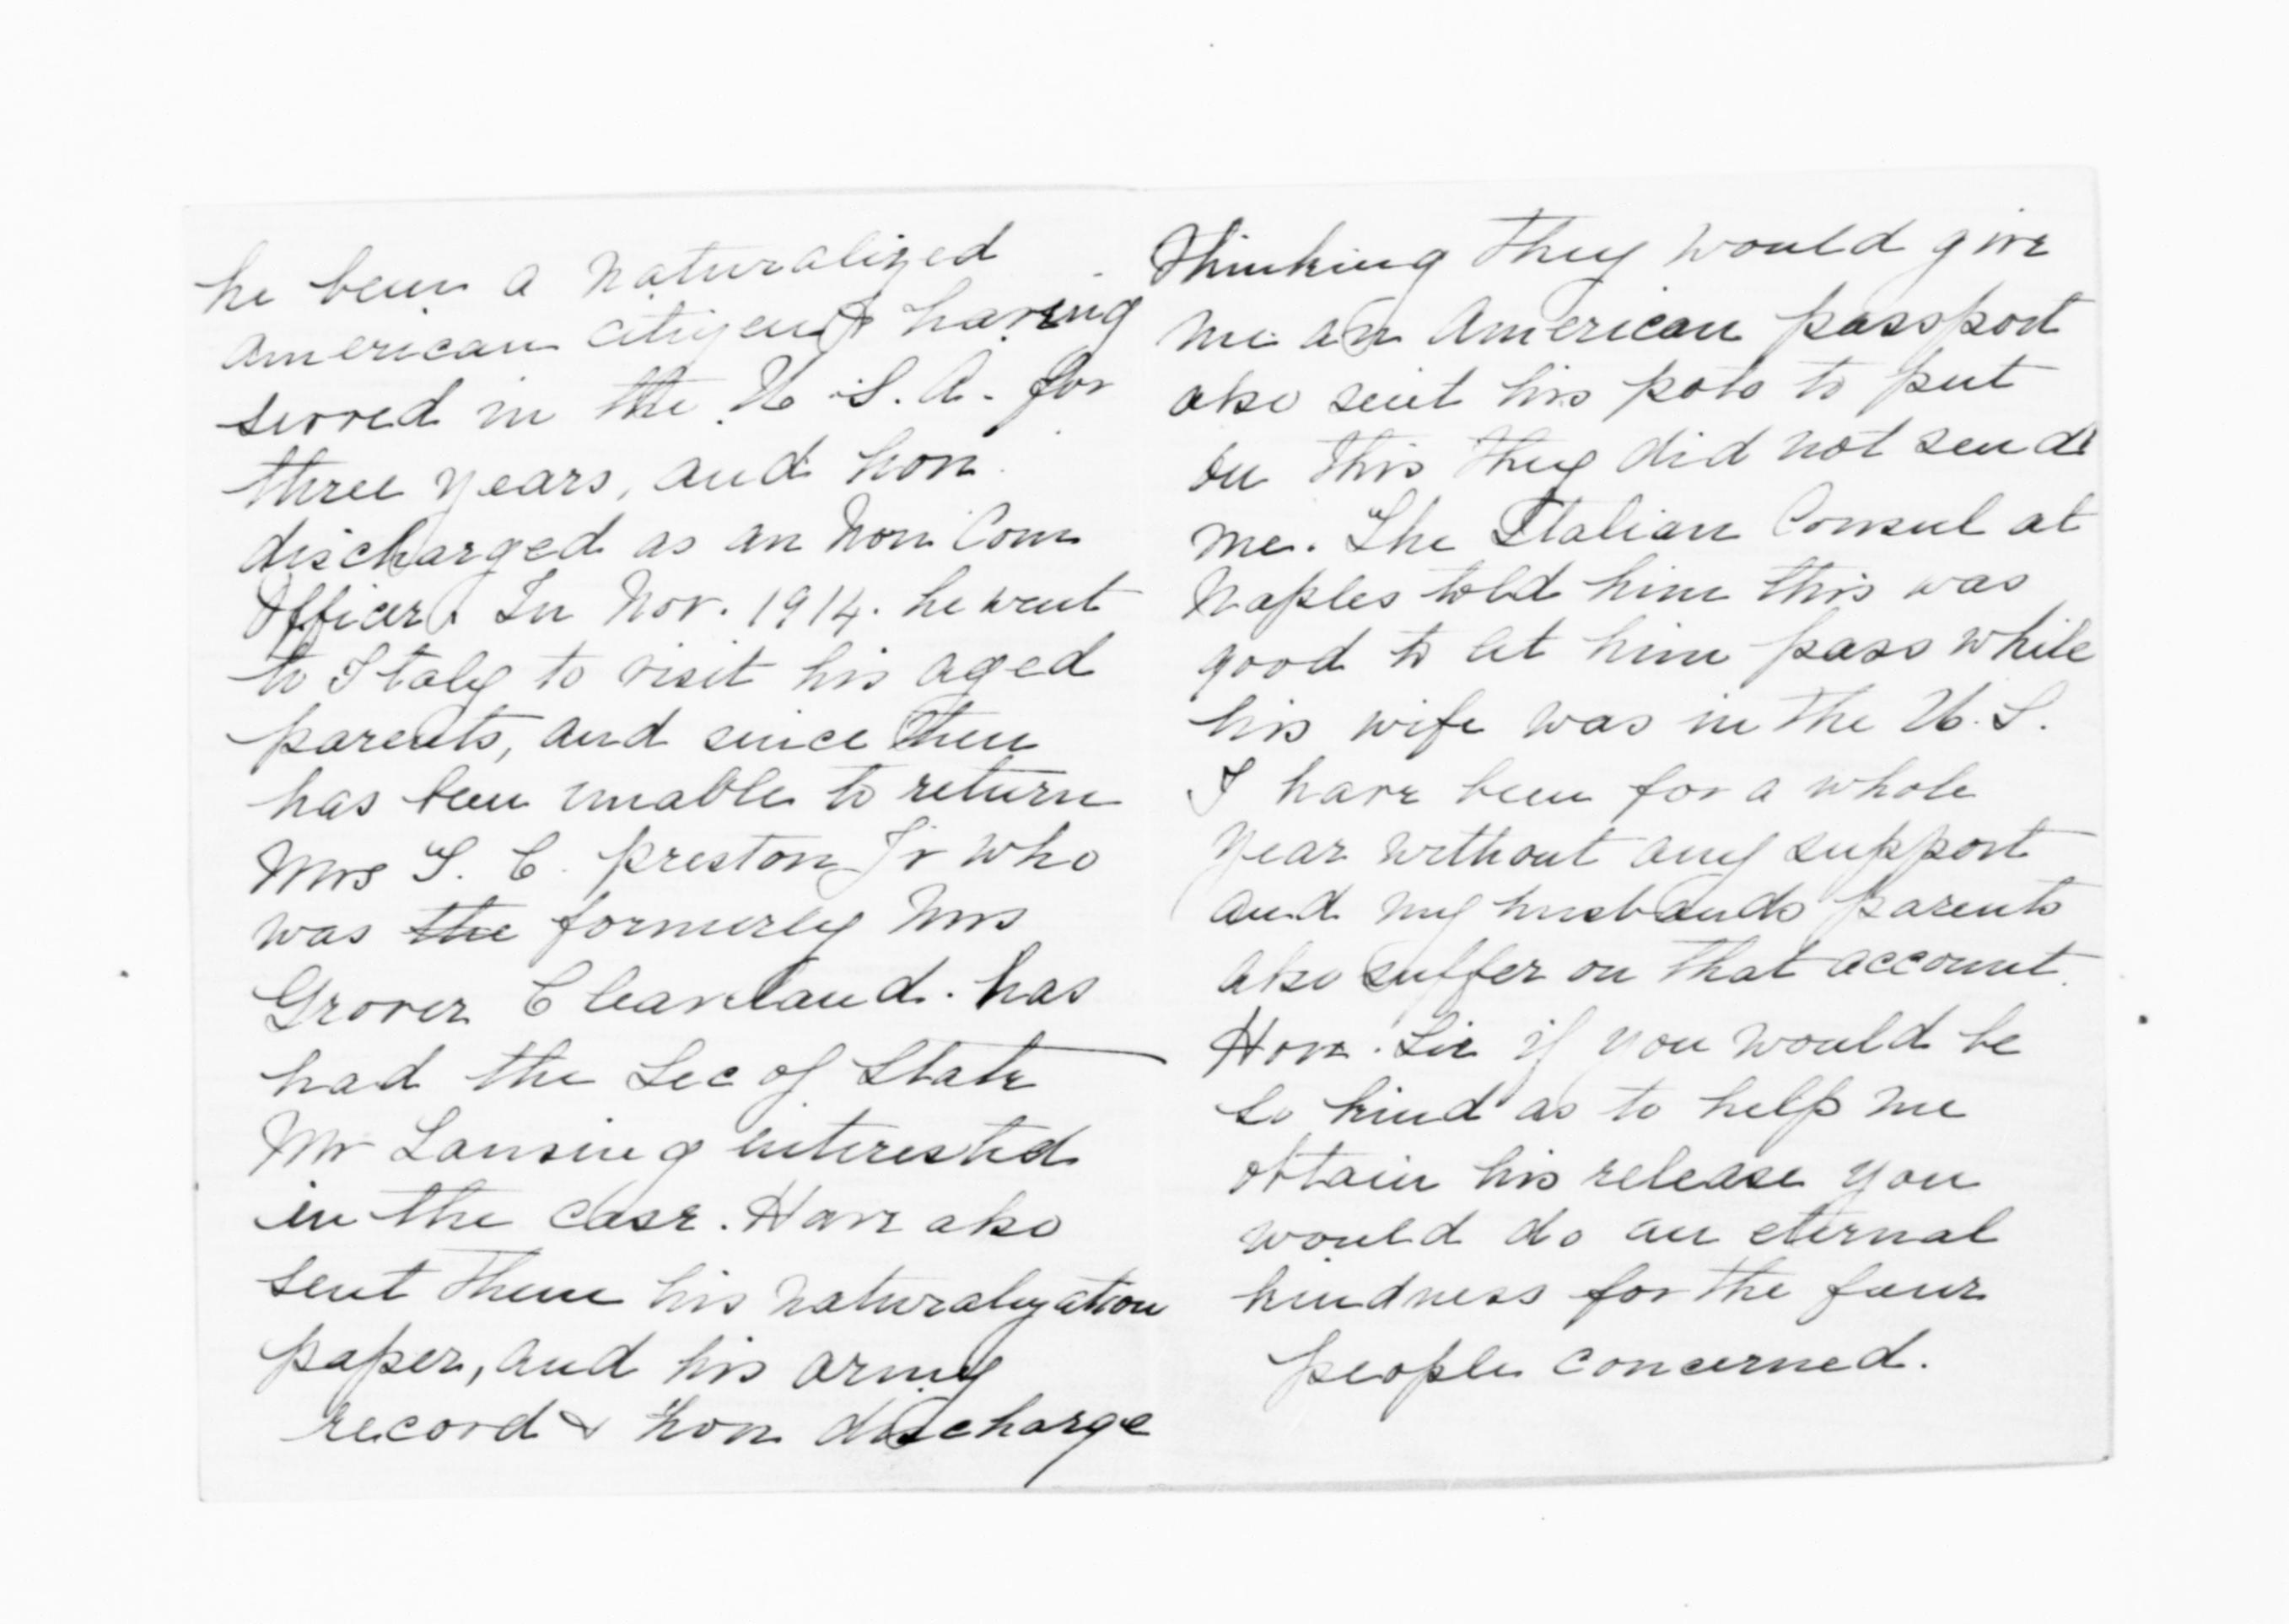 he been a naturalized
American citizen & having
served in the U.S.A. for
three years, and hon.
discharged as an Non Com
Officer. In Nov. 1914. he went
to Italy to visit his aged
parents, and since then
has been unable to return
Mrs T. C. preston Jr who
was the formerly Mrs
Grover Cleaveland. has
had the Sec of State
Mr Lansing interested
in the case. Have also
sent them his naturalization
paper, and his army
record & hon discharge
Thinking they would give
me an American passport
also sent his poto to put
on this they did not send
me. The Italian Consul at
Naples told him this was
good to let him pass while
his wife was in the U.S.
I have been for a whole
year without any support
and my husbands parents
also suffer on that account.
Hon. Sir if you would be
so kind as to help me
obtain his release you
would do an eternal
kindness for the four
people concerned.